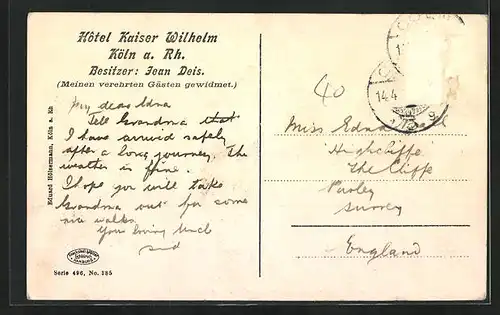 Hôtel Kaiser Wilhelm
Köln a. Rh.
Besitzer: Jean Deis.
(Meinen verehrten Gästen gewidmet.)
My dear Edna
Tell Grandma that
I have arrived safely
after a long journey. The
weather is fine.
I hope you will take
Grandma out for some
nice walks.
Your loving Uncle
Sid
Eduard Hölzermann, Köln a. Rh.
Serie 496, No. 185
40
14.4
Miss Edna
Highcliffe
The Cliffe
Purley
Surrey
England